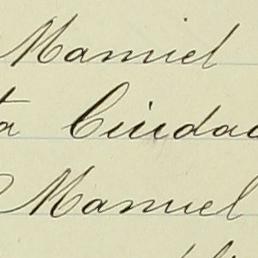 Manuel
ta Ciudad
Manuel